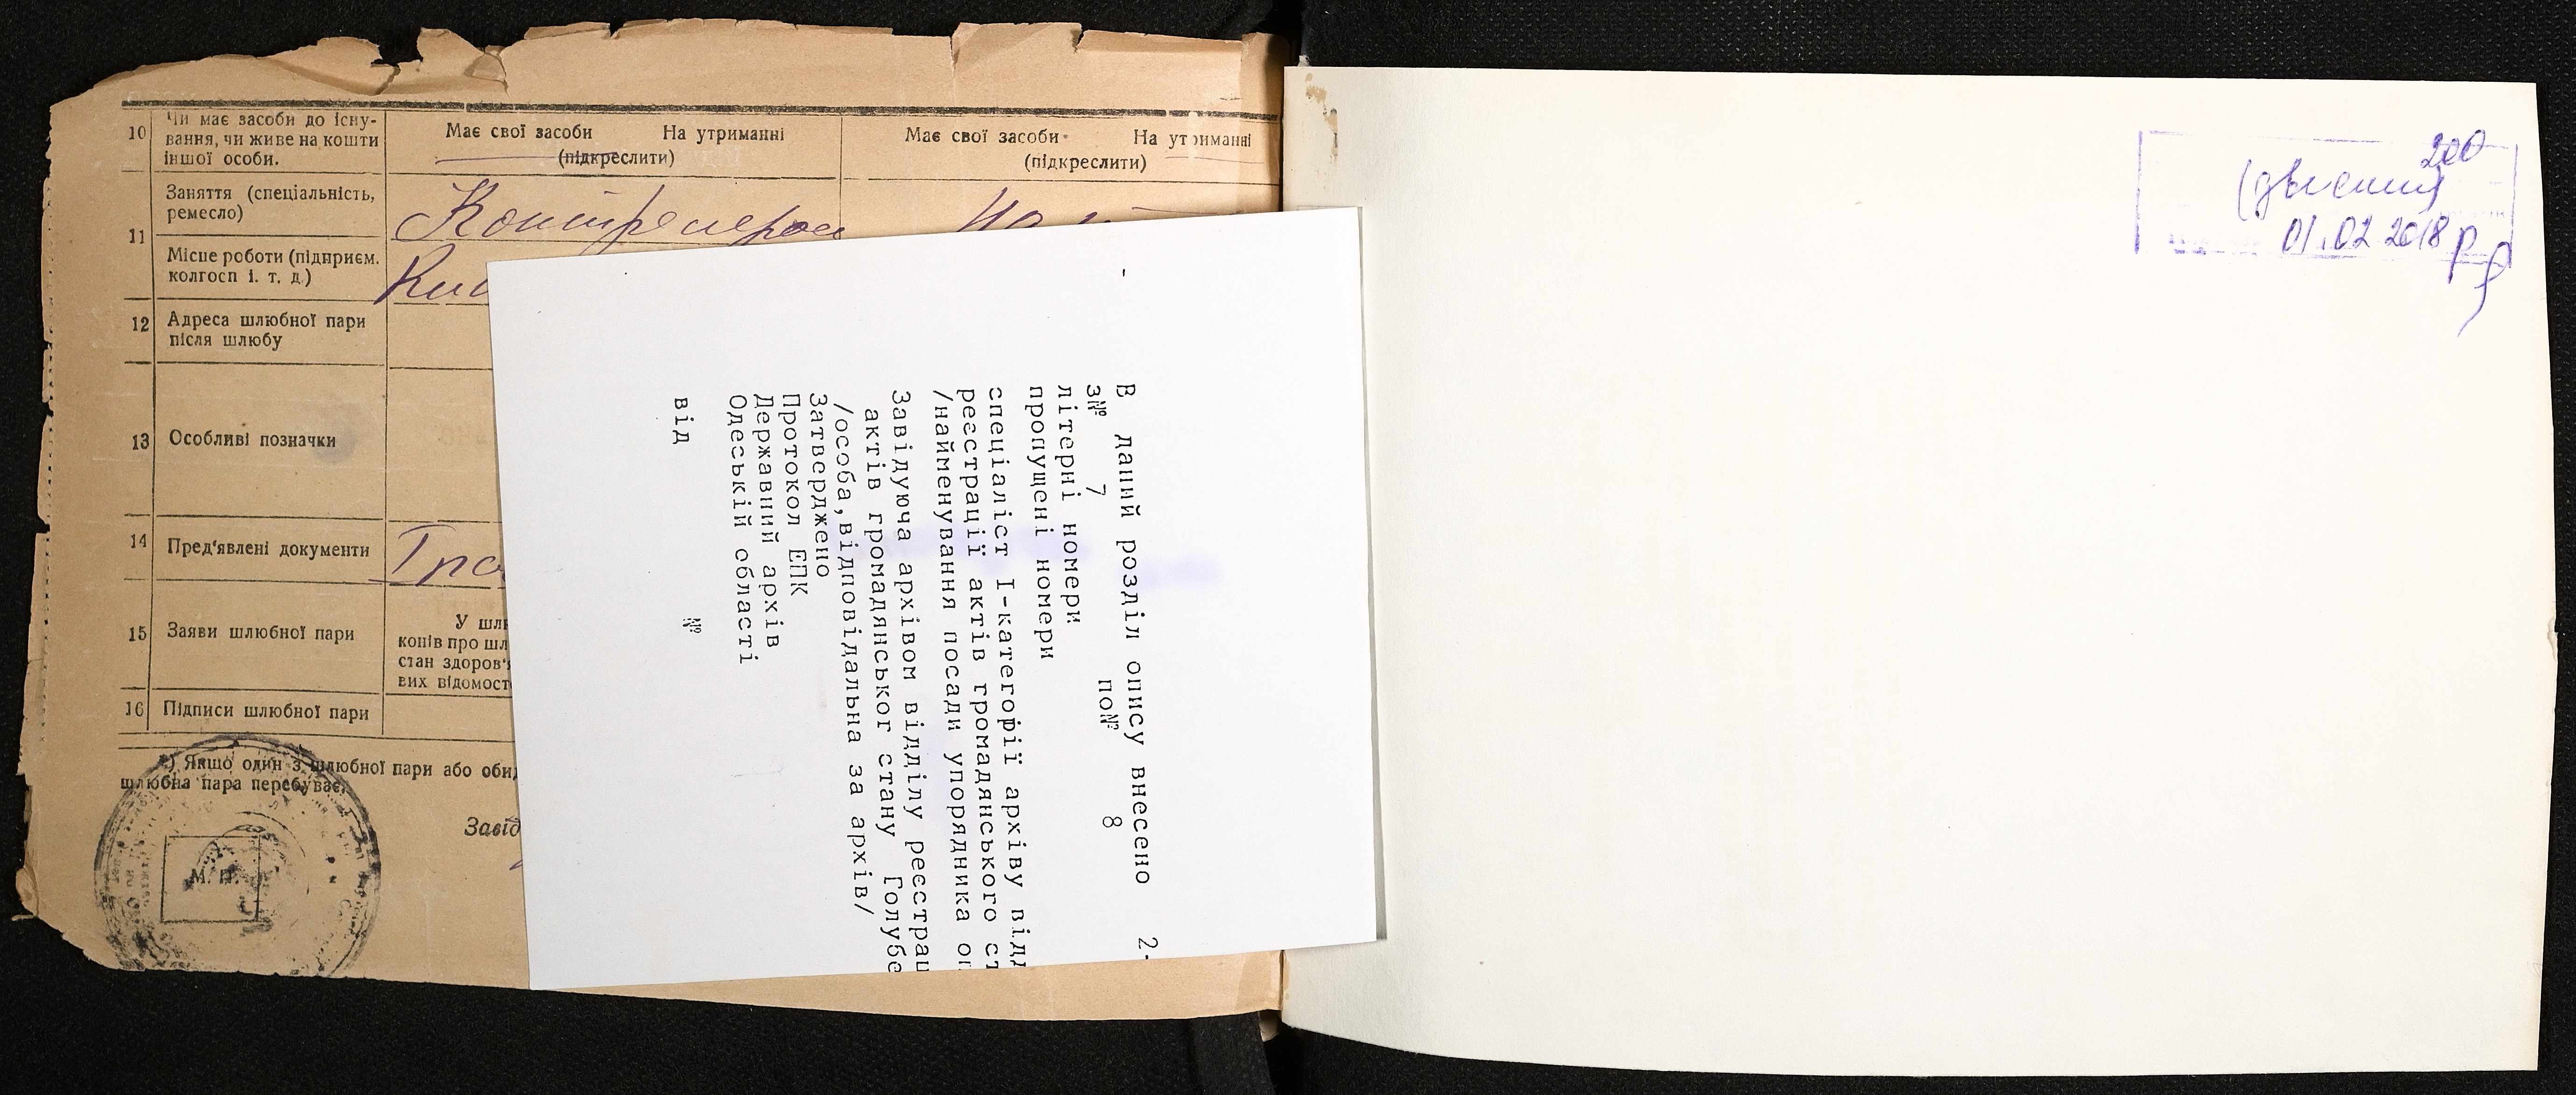 10
Чи має засоби до існу-
вання, чи живе на кошти
іншої особи.
Має свої засоби На утриманні
(підкреслити)
Має свої засоби На утриманні
(підкреслити)
11
Заняття (спеціальність,
ремесло)
Місце роботи (підприєм.
колгосп і. т. д.)
12
Адреса шлюбної пари
після шлюбу
13
Особливі позначки
14
Пред'явлені документи
15
Заяви шлюбної пари
У шлю
конів про шл
стан здоров'я
вих відомост
16
Підписи шлюбної пари
*) Якщо один з шлюбної пари або обид
шлюбна пара перебуває.
Завід
М. П.
В даний розділ опису внесено 2-
з№ 7 по№ 8
літерні номери
пропущені номери
спеціаліст І-категорії архіву відд
реєстрації актів громадянського ст
/найменування посади упорядника оп
Завідуюча архівом відділу реєстрац
актів громадянськог стану Голубе
/особа,відповідальна за архів/
Затверджено
Протокол ЕПК
Державний архів
Одеській області
від №
200
01.02 2018 р